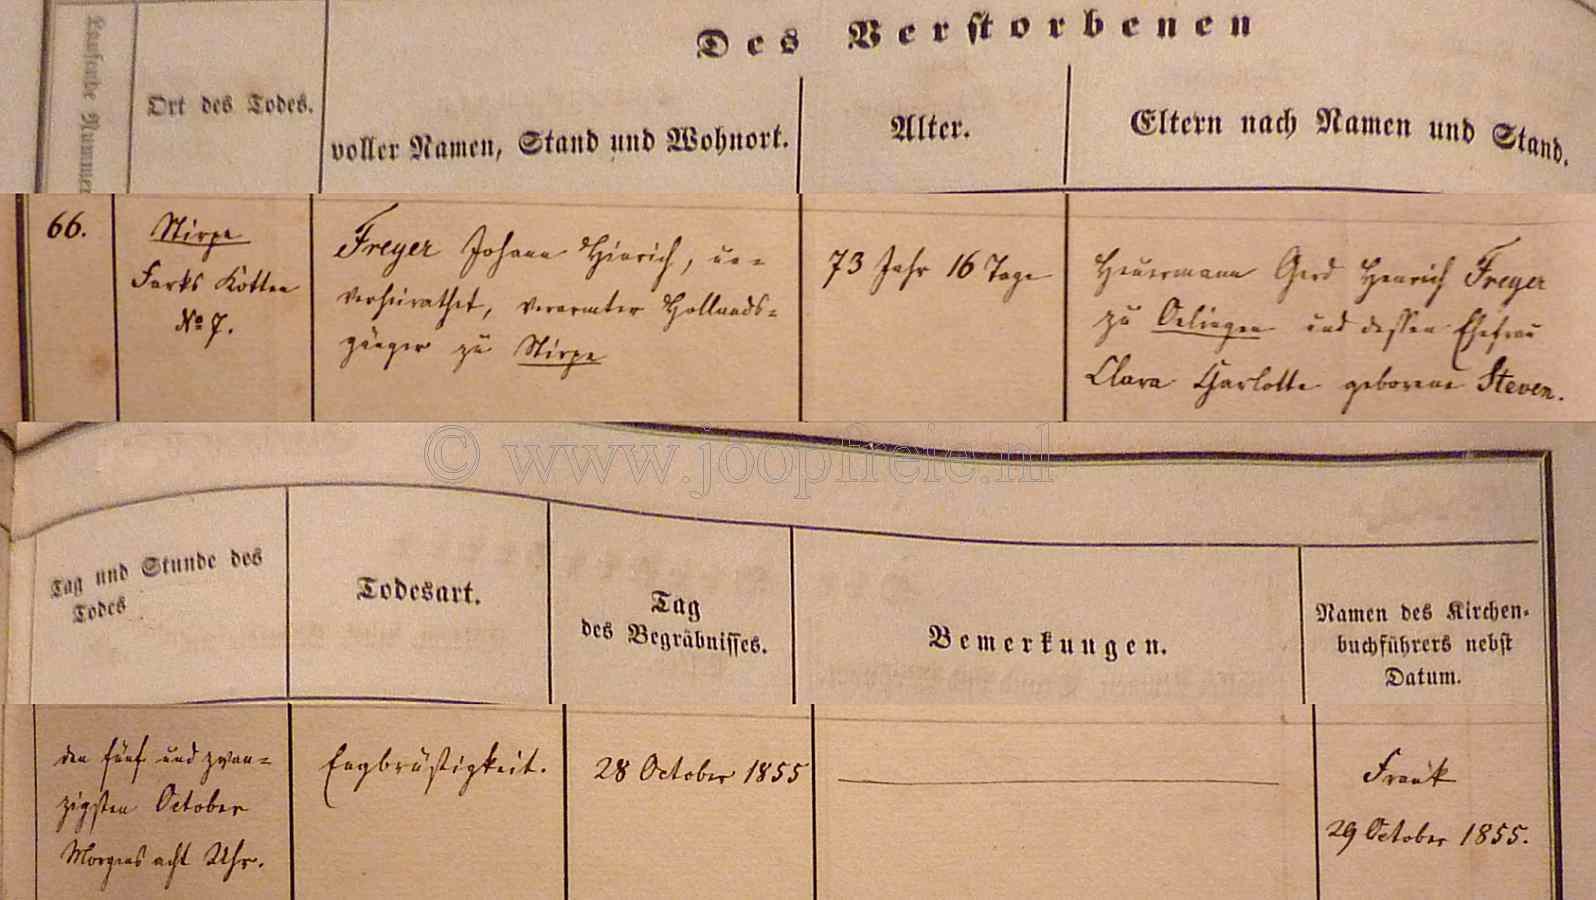 Des Verstorbenen
Laufende Nummer
Ort des Todes.
voller Namen, Stand und Wohnort.
Alter.
Eltern nach Namen und Stand.
66.
Stirpe
Farks Kotten
No 7.
Freyer Johann Hinrich, un=
verheirathet, verarmter Hollands=
gänger zu Stirpe
73 Jahr 16 Tage
Heuermann Gerd Henrich Freyer
zu Oelingen und dessen Ehefrau
Clara Charlotte geborene Steven.
© www.joopfreie.nl
Tag und Stunde des
Todes
Todesart.
Tag
des Begräbnisses.
Bemerkungen.
Namen des Kirchen-
buchführers nebst
Datum.
den fünf und zwan=
zigsten October
Morgens acht Uhr.
Engbrüstigkeit.
28 October 1855
Frank
29 October 1855.